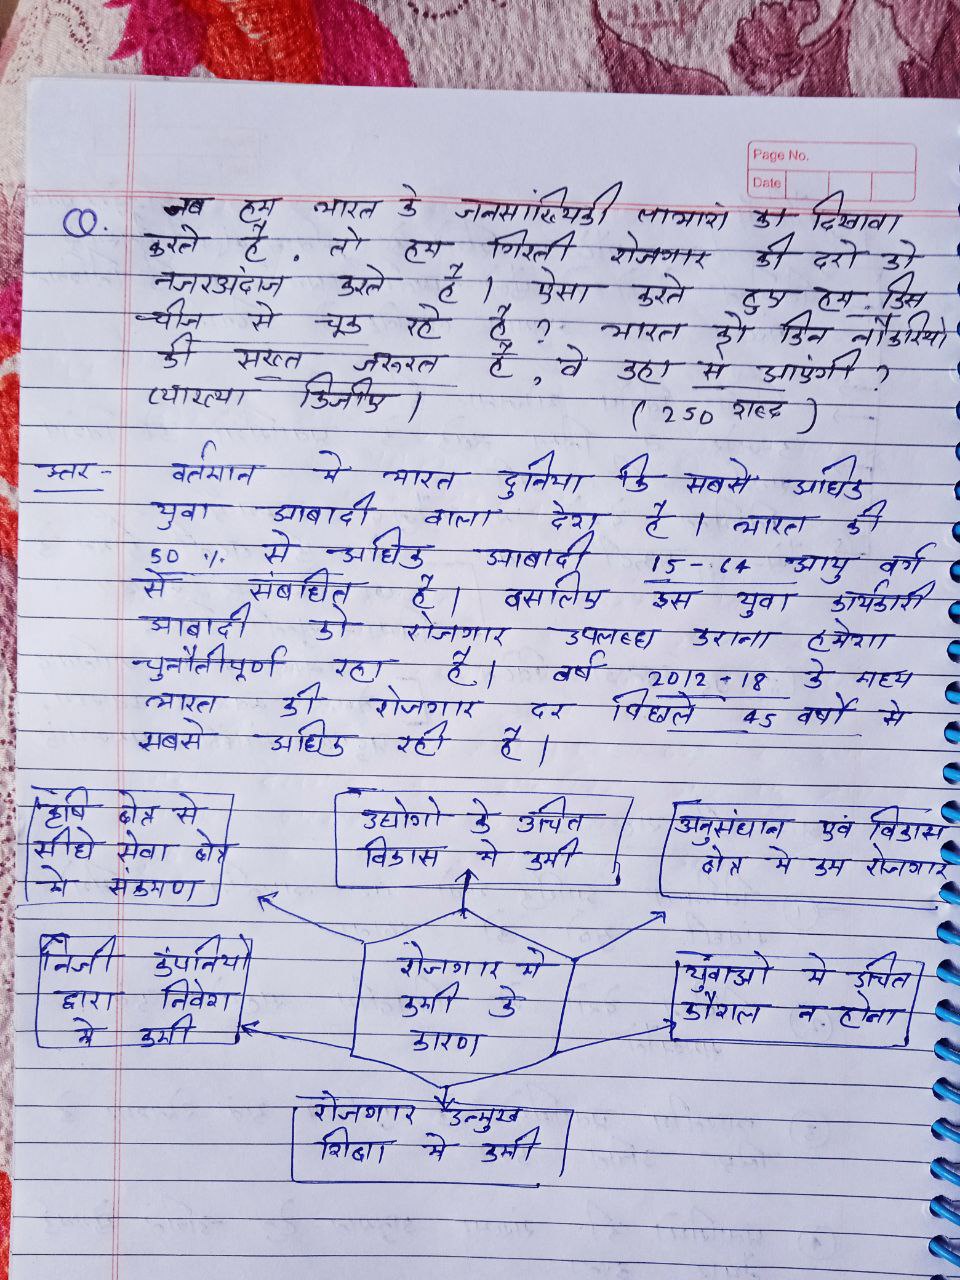 Page No.
Date
Q. जब हम भारत के जनसांख्यिकी लाभांश का दिखावा
करते हैं, तो हम गिरती रोजगार की दरो को
नजरअंदाज करते है। ऐसा करते हुए हम किस
चीज से चूक रहे हैं? भारत को जिन नौकरियो
की सख्त जरूरत है, वे कहा से आएंगी?
व्याख्या कीजीए। (250 शब्द)
उतर- वर्तमान मे भारत दुनिया कि सबसे अधिक
युवा आबादी वाला देश है। भारत की
50 % से अधिक आबादी 15-64 आयु वर्ग
से संबधित है। इसलिए इस युवा कार्यकारी
आबादी को रोजगार उपलब्ध कराना हमेशा
चुनौतीपूर्ण रहा है। वर्ष 2012-18 के मध्य
भारत की रोजगार दर पिछले 45 वर्षो मे
सबसे अधिक रही है।
कृषि क्षेत्र से
सीधे सेवा क्षेत्र
मे संक्रमण
उद्योगो के उचित
विकास मे कमी
अनुसंधान एवं विकास
क्षेत्र मे कम रोजगार
निजी कंपनियो
द्वारा निवेश
मे कमी
रोजगार मे
कमी के
कारण
युवाओ मे उचित
कौशल न होना
रोजगार उन्मुख
शिक्षा मे कमी